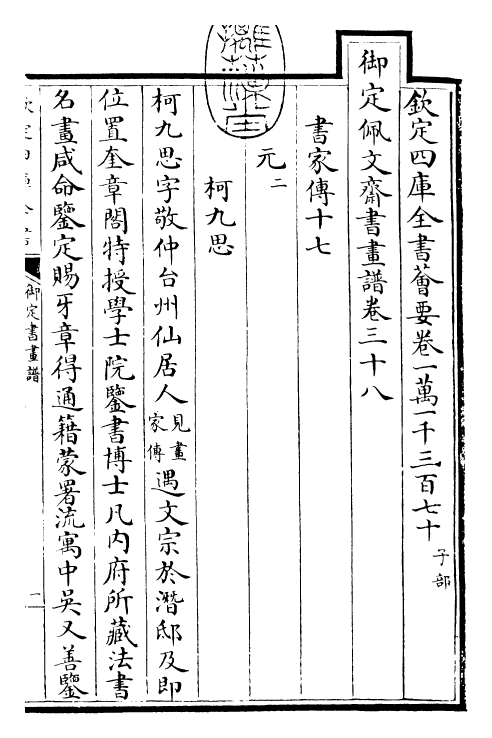 欽定四庫全書薈要卷一萬一千三百七十 子部
御定佩文齋書畫譜卷三十八
書家傳十七
元二
柯九思
柯九思字敬仲台州仙居人見畫家傳遇文宗於潛邸及即
位置奎章閣特授學士院鑒書博士凡內府所藏法書
名畫咸命鑒定賜牙章得通籍蒙署流寓中吳又善鑒
御定書畫譜